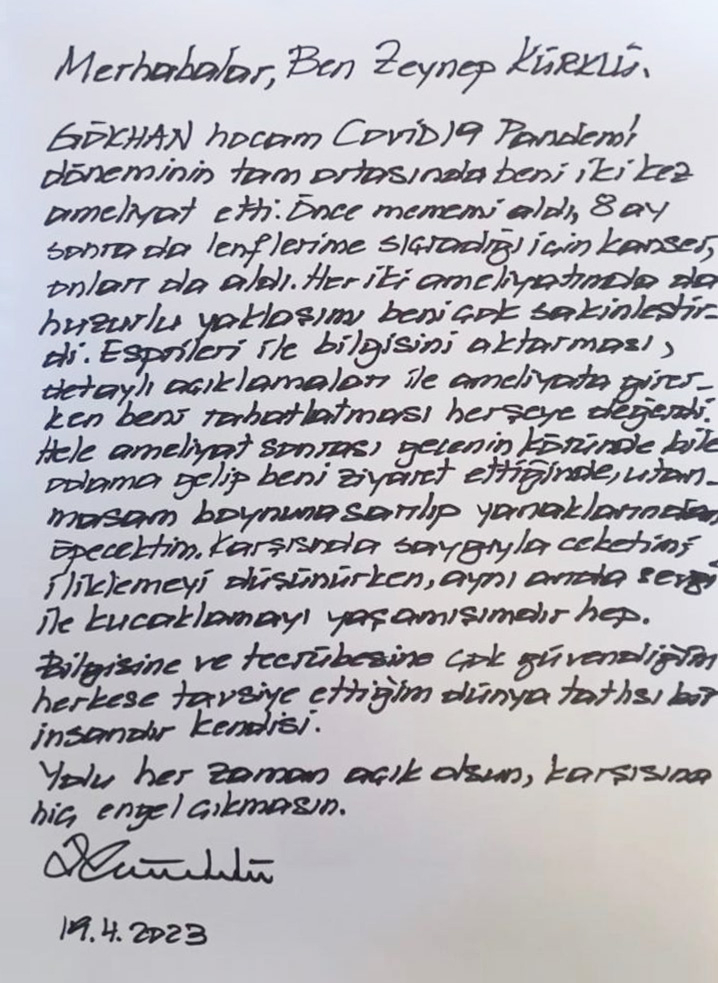 Merhabalar, Ben Zeynep KÜRKLÜ.
GÖKHAN hocam Covid19 Pandemi
döneminin tam ortasında beni iki kez
ameliyat etti. Önce mememi aldı, 8 ay
sonra da lenflerime sıçradığı için kanser,
onları da aldı. Her iki ameliyatımda da
huzurlu yaklaşımı beni çok sakinleştir-
di. Esprileri ile bilgisini aktarması,
detaylı açıklamaları ile ameliyata girer-
ken beni rahatlatması herşeye değerdi.
Hele ameliyat sonrası gecenin köründe bile
odama gelip beni ziyaret ettiğinde, utan-
masam boynuna sarılıp yanaklarından
öpecektim. Karşısında saygıyla ceketimi
iliklemeyi düşünürken, aynı anda sevgi
ile kucaklamayı yaşamışımdır hep.
Bilgisine ve tecrübesine çok güvendiğim
herkese tavsiye ettiğim dünya tatlısı bir
insandır kendisi.
Yolu her zaman açık olsun, karşısına
hiç engel çıkmasın.
19.4.2023